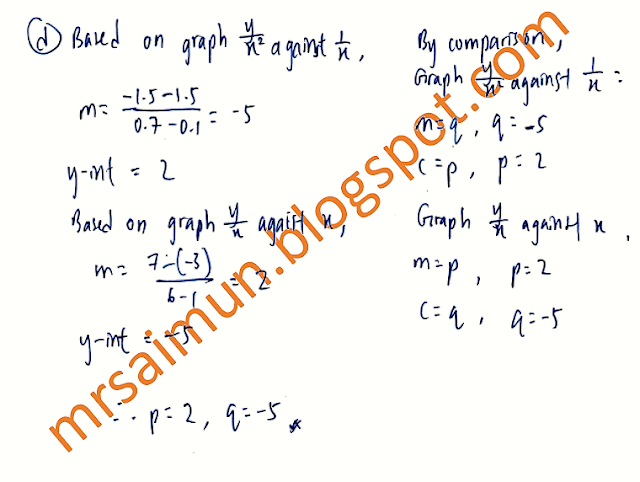 (d) Based on graph y/x² against 1/x,
m = (-1.5 - 1.5)/(0.7 - 0.1) = -5
y-int = 2
Based on graph y/x against x,
m = (7-(-3))/(6-1) = 2
y-int = -5
∴ p = 2, q = -5
By comparison,
Graph y/x² against 1/x :
m = q, q = -5
c = p, p = 2
Graph y/x against x,
m = p, p = 2
c = q, q = -5
mrsaimun.blogspot.com